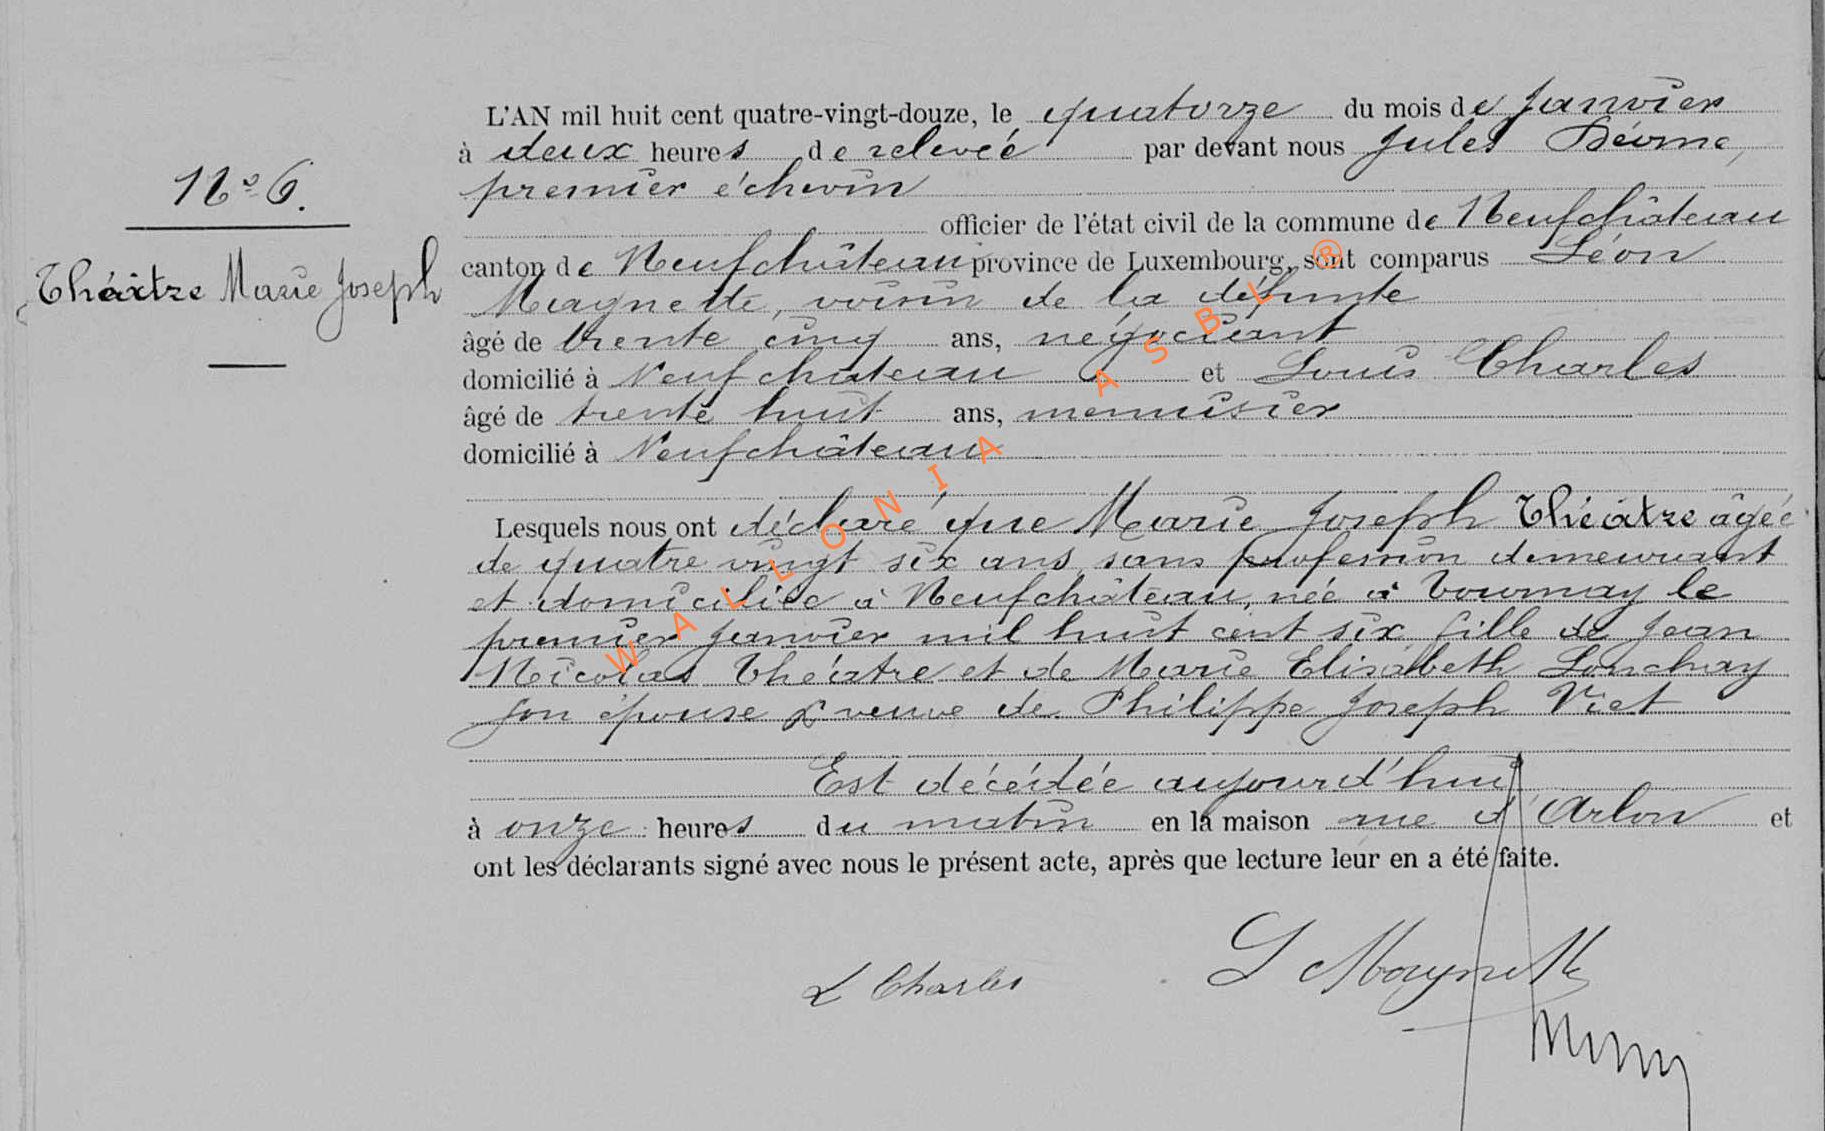 L'AN mil huit cent quatre-vingt-douze, le quatorze du mois de Janvier
à deux heures de relevée par devant nous Jules
premier échevin
officier de l'état civil de la commune de Neufchâteau
N° 6.
Théâtre Marie Joseph
canton de Neufchâteau province de Luxembourg, sont comparus Léon
Magnette, voisin de la défunte
âgé de trente cinq ans, négociant
domicilié à Neufchateau et Louis Charles
âgé de trente huit ans, menuisier
domicilié à Neufchâteau
Lesquels nous ont déclaré que Marie Joseph Théâtre âgée
de quatre vingt six ans, sans profession demeurant
et domiciliée à Neufchâteau, née à Tournay le
premier Janvier mil huit cent six fille de Jean
Nicolas Théâtre et de Marie Elisabeth Lonchay
son épouse & veuve de Philippe Joseph Viet
Est décédée aujourd'hui
à onze heures du matin en la maison rue d'Arlon et
ont les déclarants signé avec nous le présent acte, après que lecture leur en a été faite.
L Charles
L Magnette
WALLONIA ASBL ®